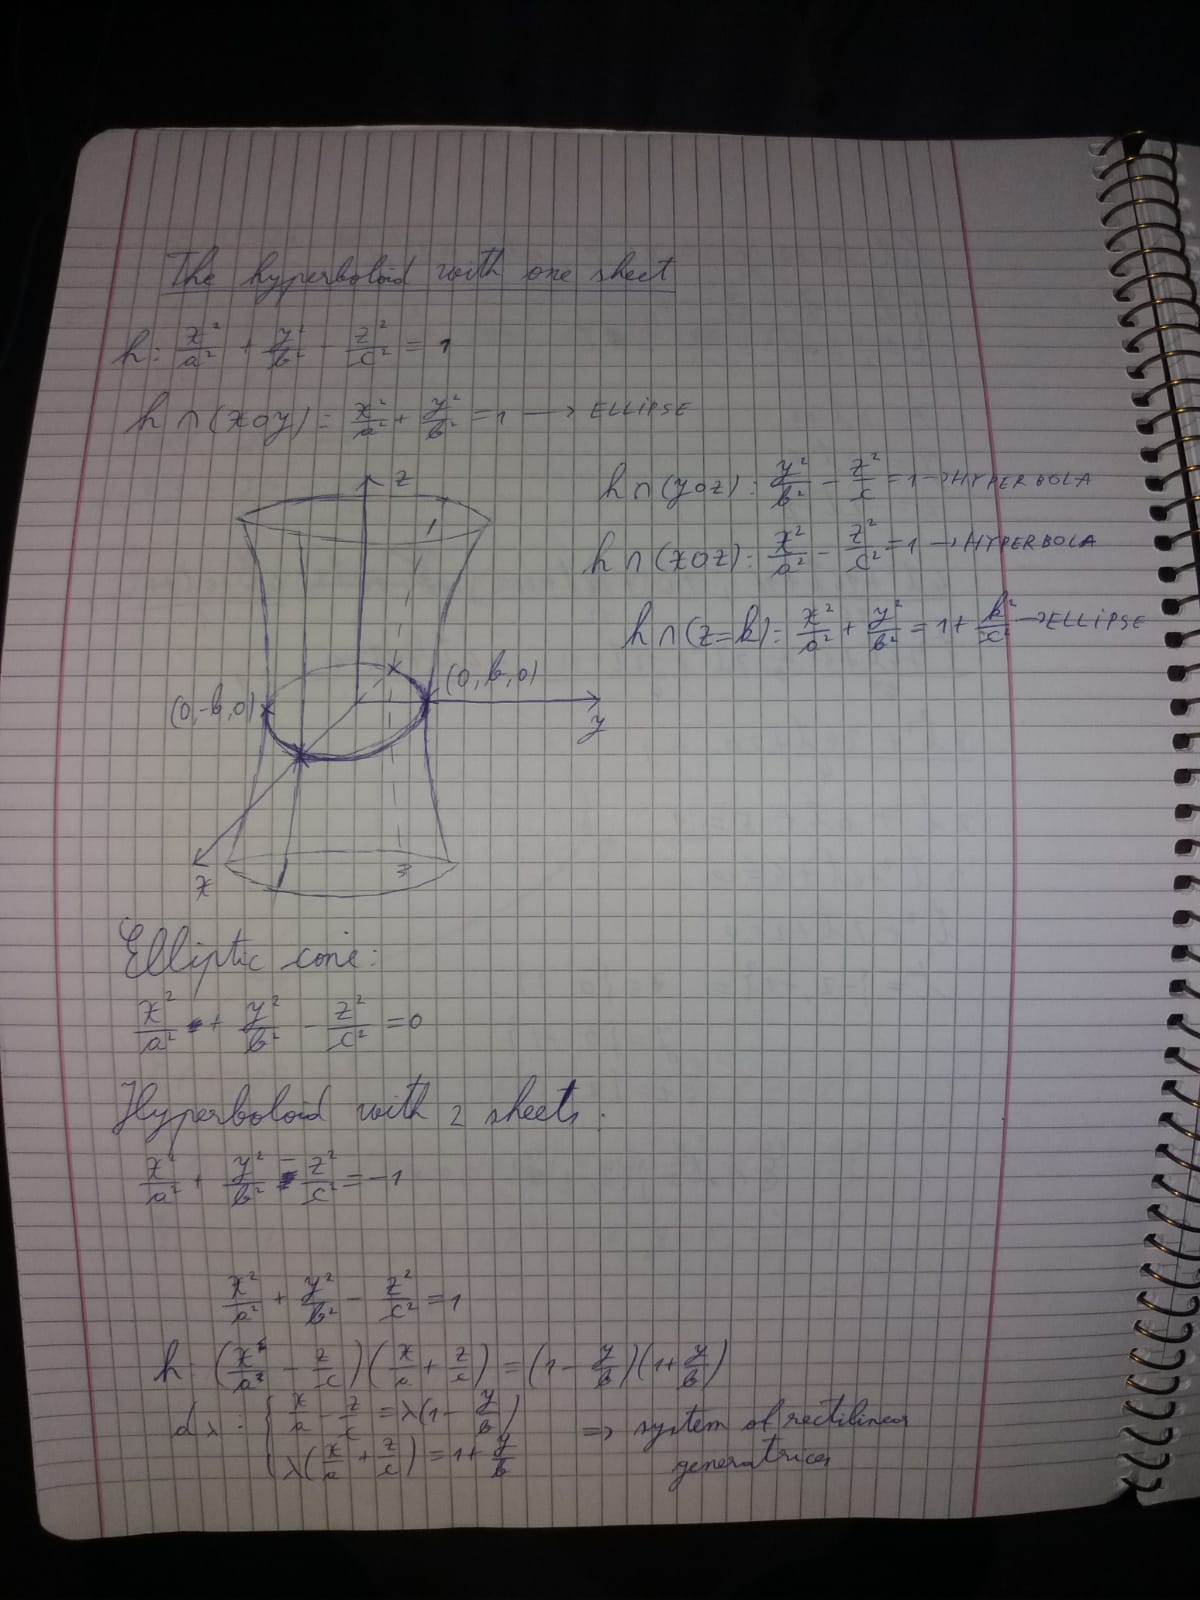 The hyperboloid with one sheet
h: x²/a² + y²/b² - z²/c² = 1
h ∩ (xoy) = x²/a² + y²/b² = 1 → ELLIPSE
h ∩ (yoz): y²/b² - z²/c = 1 → HYPERBOLA
h ∩ (xoz): x²/a² - z²/c² = 1 → HYPERBOLA
h ∩ (z=k): x²/a² + y²/b² = 1 + k²/c² → ELLIPSE
z
(0,-b,0)
(0,b,0)
y
x
Elliptic cone:
x²/a² + y²/b² - z²/c² = 0
Hyperboloid with 2 sheets:
x²/a² + y²/b² - z²/c² = -1
x²/a² + y²/b² - z²/c² = 1
h: (x²/a² - z/c)(x/a + z/c) = (1 - y/b)(1 + y/b)
dλ: { x/a - z/c = λ(1 - y/b) ⇒ system of rectilinear
λ(x/a + z/c) = 1 + y/b generatrices